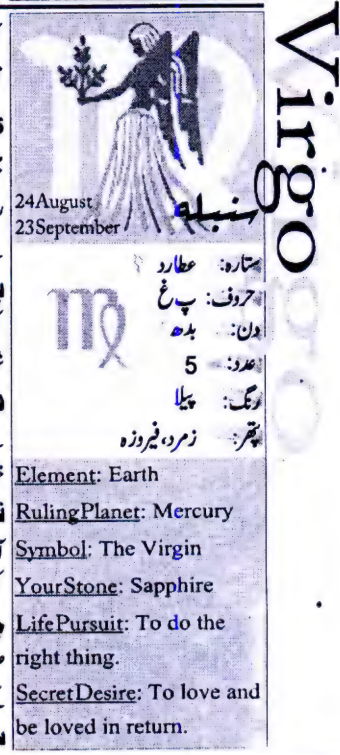 Virgo
24August
23September
سنبلہ
ستارہ: عطارد
حروف: پ غ
دن: بدھ
عدد: 5
رنگ: پیلا
پتھر: زمرد، فیروزہ
Element: Earth
RulingPlanet: Mercury
Symbol: The Virgin
YourStone: Sapphire
LifePursuit: To do the
right thing.
SecretDesire: To love and
be loved in return.